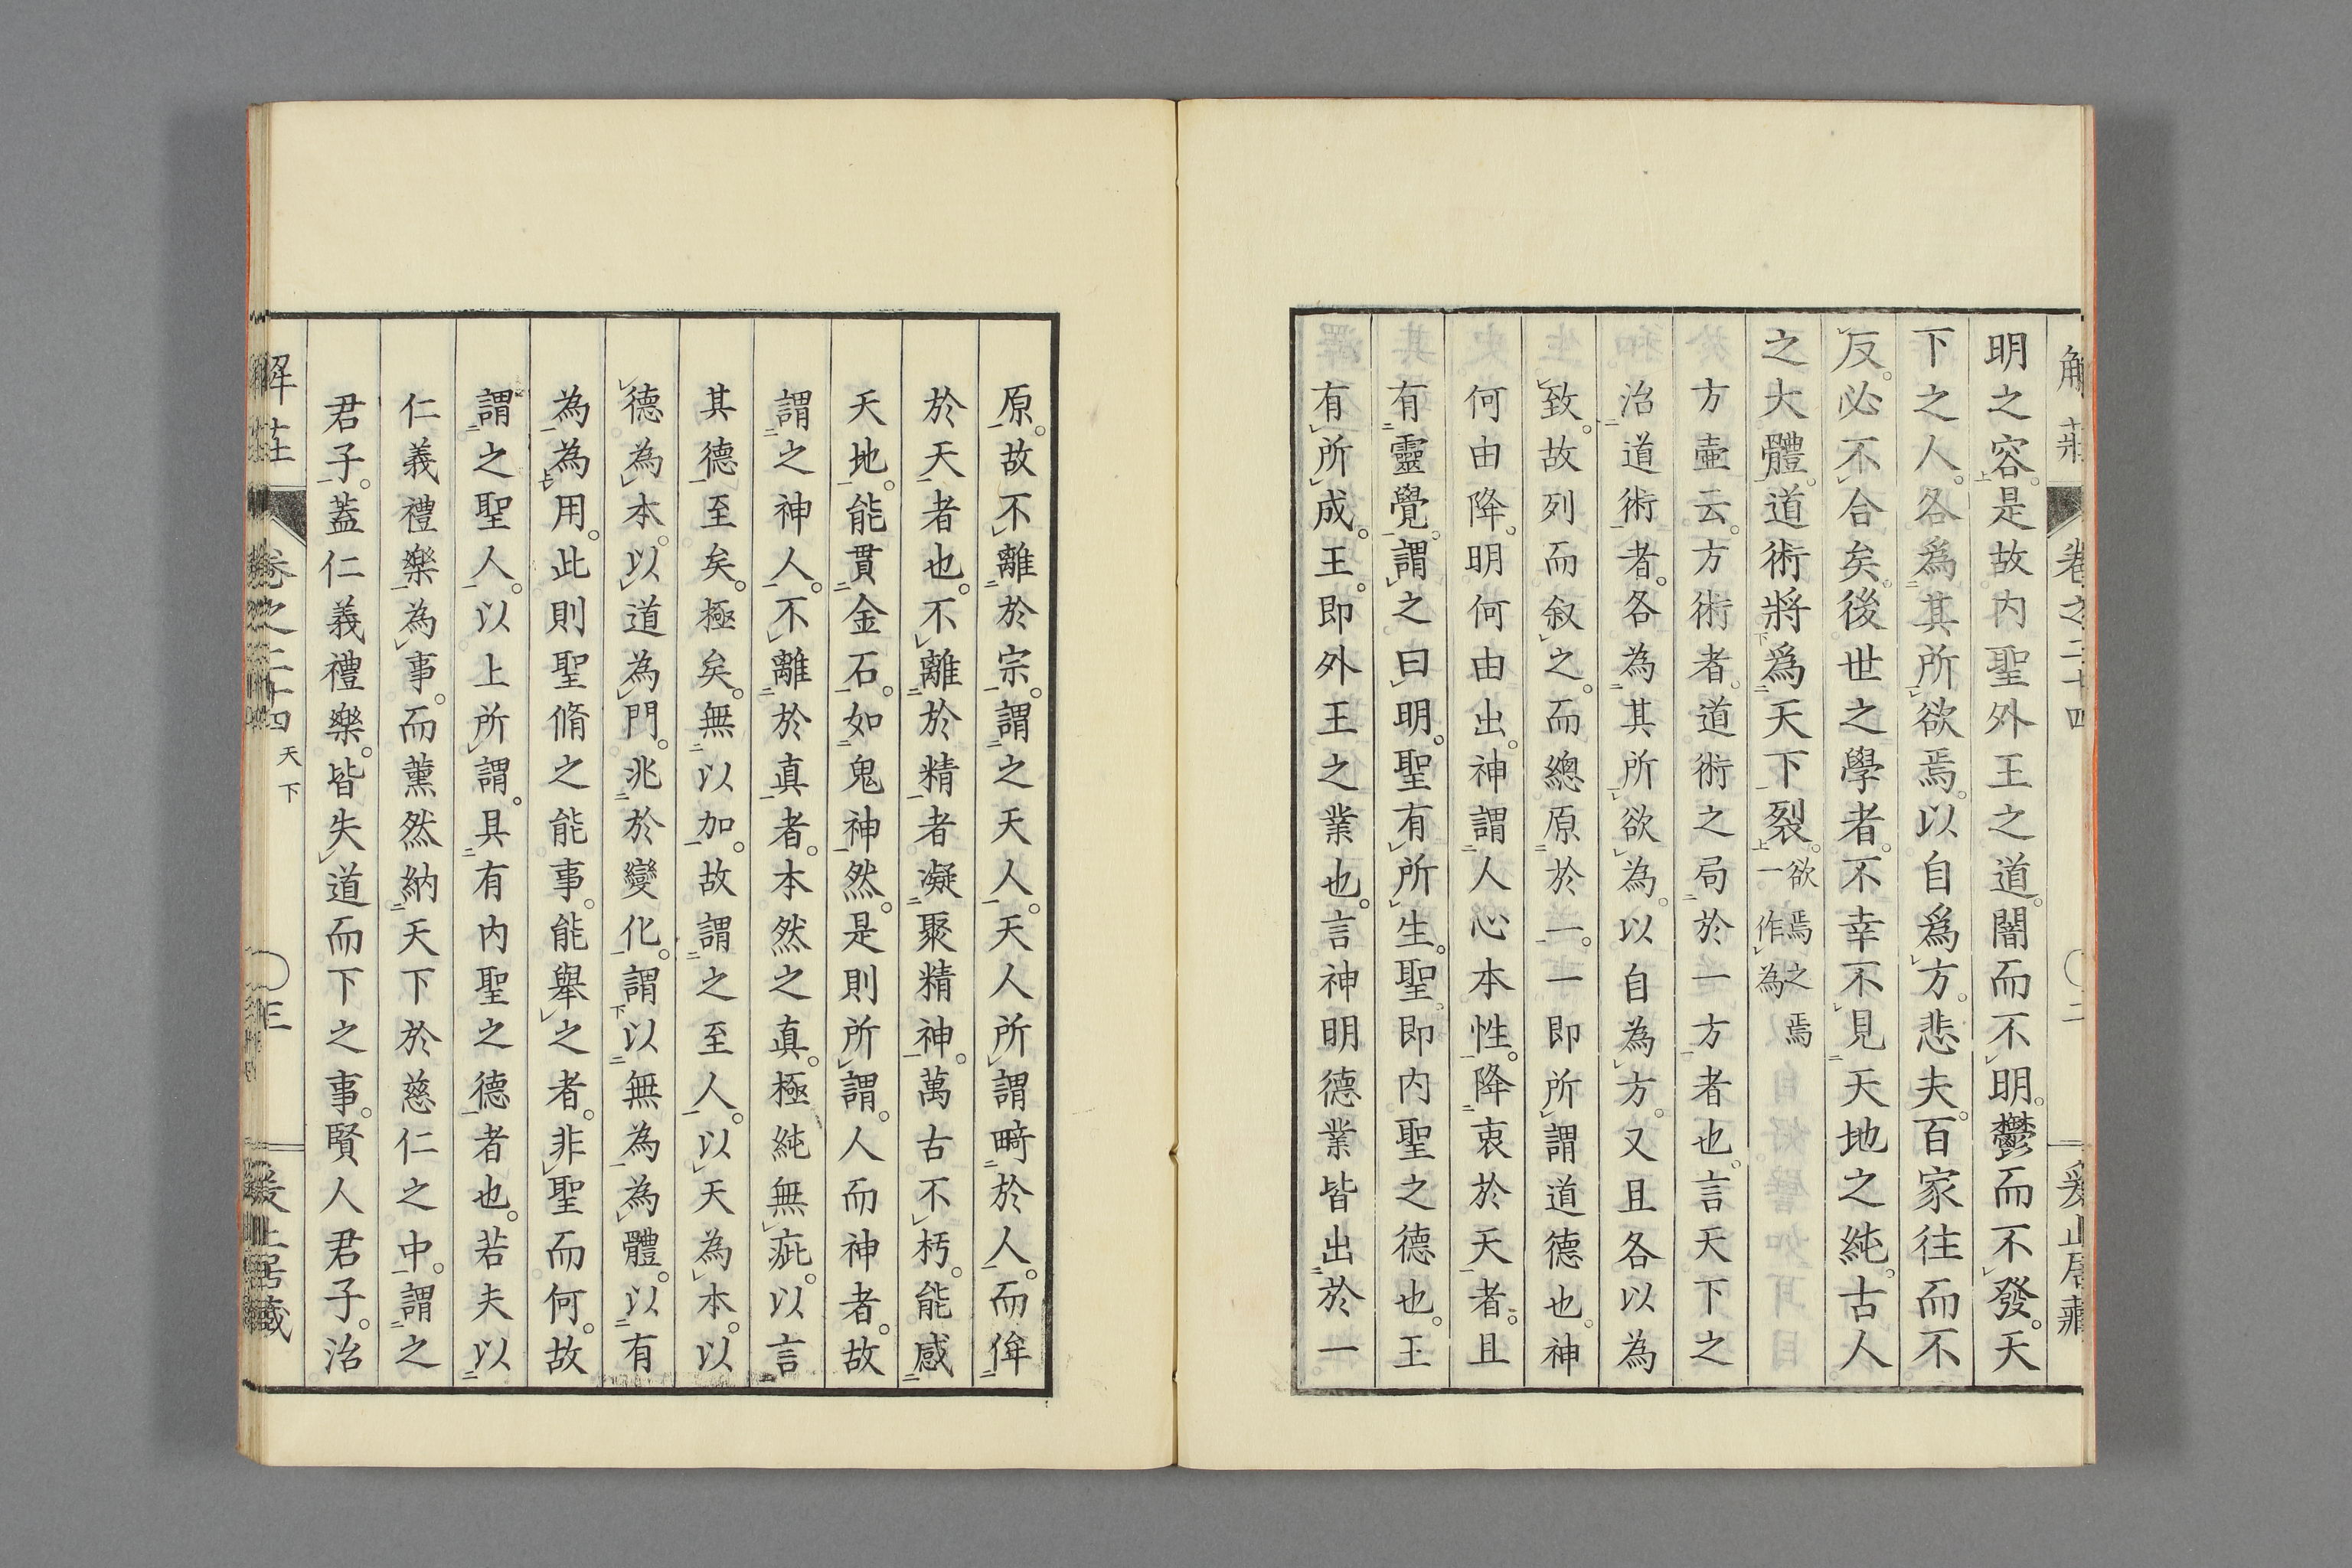 明之容。是故内聖外王之道。闇而不明。鬱而不發。天
下之人。各爲其所欲焉。以自爲方。悲夫。百家往而不
反。必不合矣。後世之學者。不幸不見天地之純。古人
之大體。道術將爲天下裂。欲焉之焉一作為
方壷云。方術者。道術之局於一方者也。言天下之
治道術者。各為其所欲為。以自為方。又且各以為
致。故列而叙之。而總原於一。一即所謂道德也。神
何由降。明何由出。神謂人心本性。降衷於天者。且
有靈覺。謂之曰明。聖有所生。聖即内聖之德也。王
有所成。王即外王之業也。言神明德業皆出於一
原。故不離於宗。謂之天人。天人所謂畸於人。而侔
於天者也。不離於精者凝聚精神。萬古不朽。能感
天地。能貫金石。如鬼神然。是則所謂。人而神者。故
謂之神人。不離於真者。本然之真。極純無疵。以言
其德至矣。極矣。無以加。故謂之至人。以天為本。以
德為本。以道為門。兆於變化。謂以無為為體。以有
為為用。此則聖脩之能事。能舉之者。非聖而何。故
謂之聖人。以上所謂。具有内聖之德者也。若夫以
仁義禮樂為事。而薫然納天下於慈仁之中。謂之
君子。蓋仁義禮樂。皆失道而下之事。賢人君子。治
解莊 卷之二十四 天下 〇三